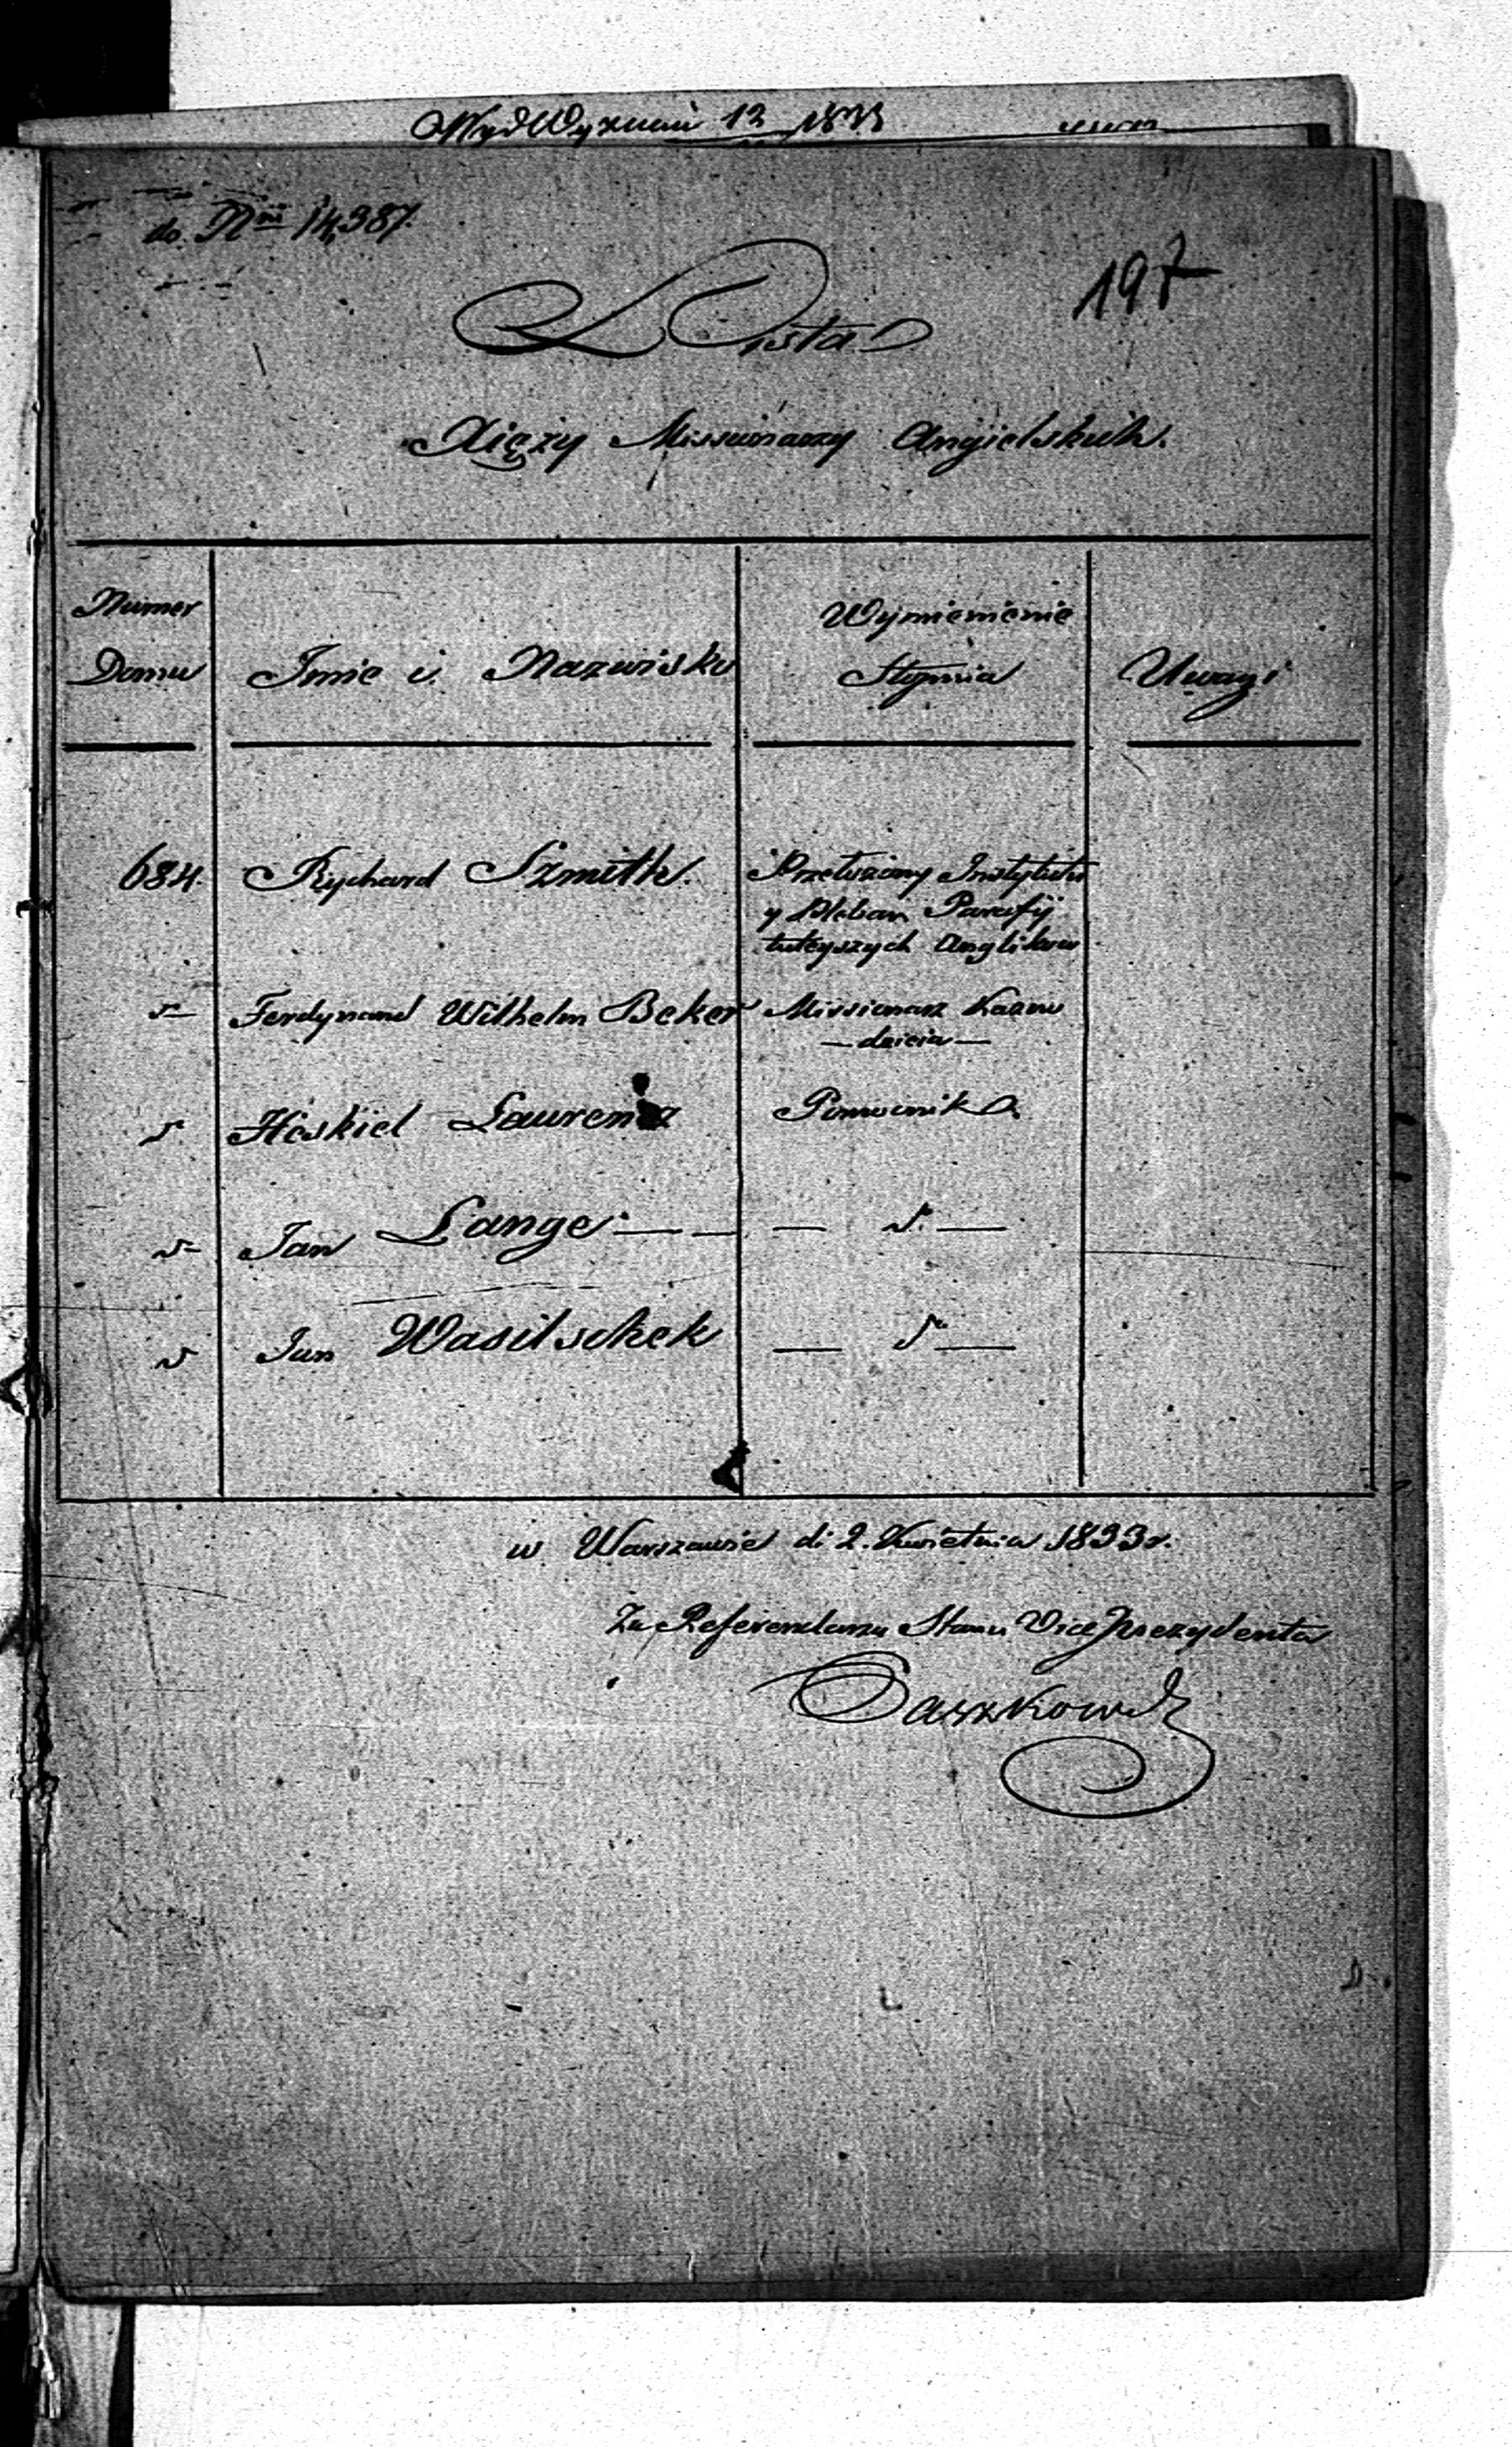 Wyd Wyznań 12 1833
do Nru 14,387.
197
Lista
Xięży Missionarzy Angielskich.
Numer Domu
Imie i Nazwisko
Wymienienie Stopnia
Uwagi
684. Rychard Szmith. Przełożony Instytutu
y Pleban Parafij
tuteyszych Anglików
Ferdynand Wilhelm Beker Missionarz Kazno
— dzieia —
Heskiel Laurenz Pomocnik
Jan Lange — —
Jan Wasilschek
w Warszawie di 2. Kwietnia 1833 r.
Za Referendarza Stanu Vice Prezydenta